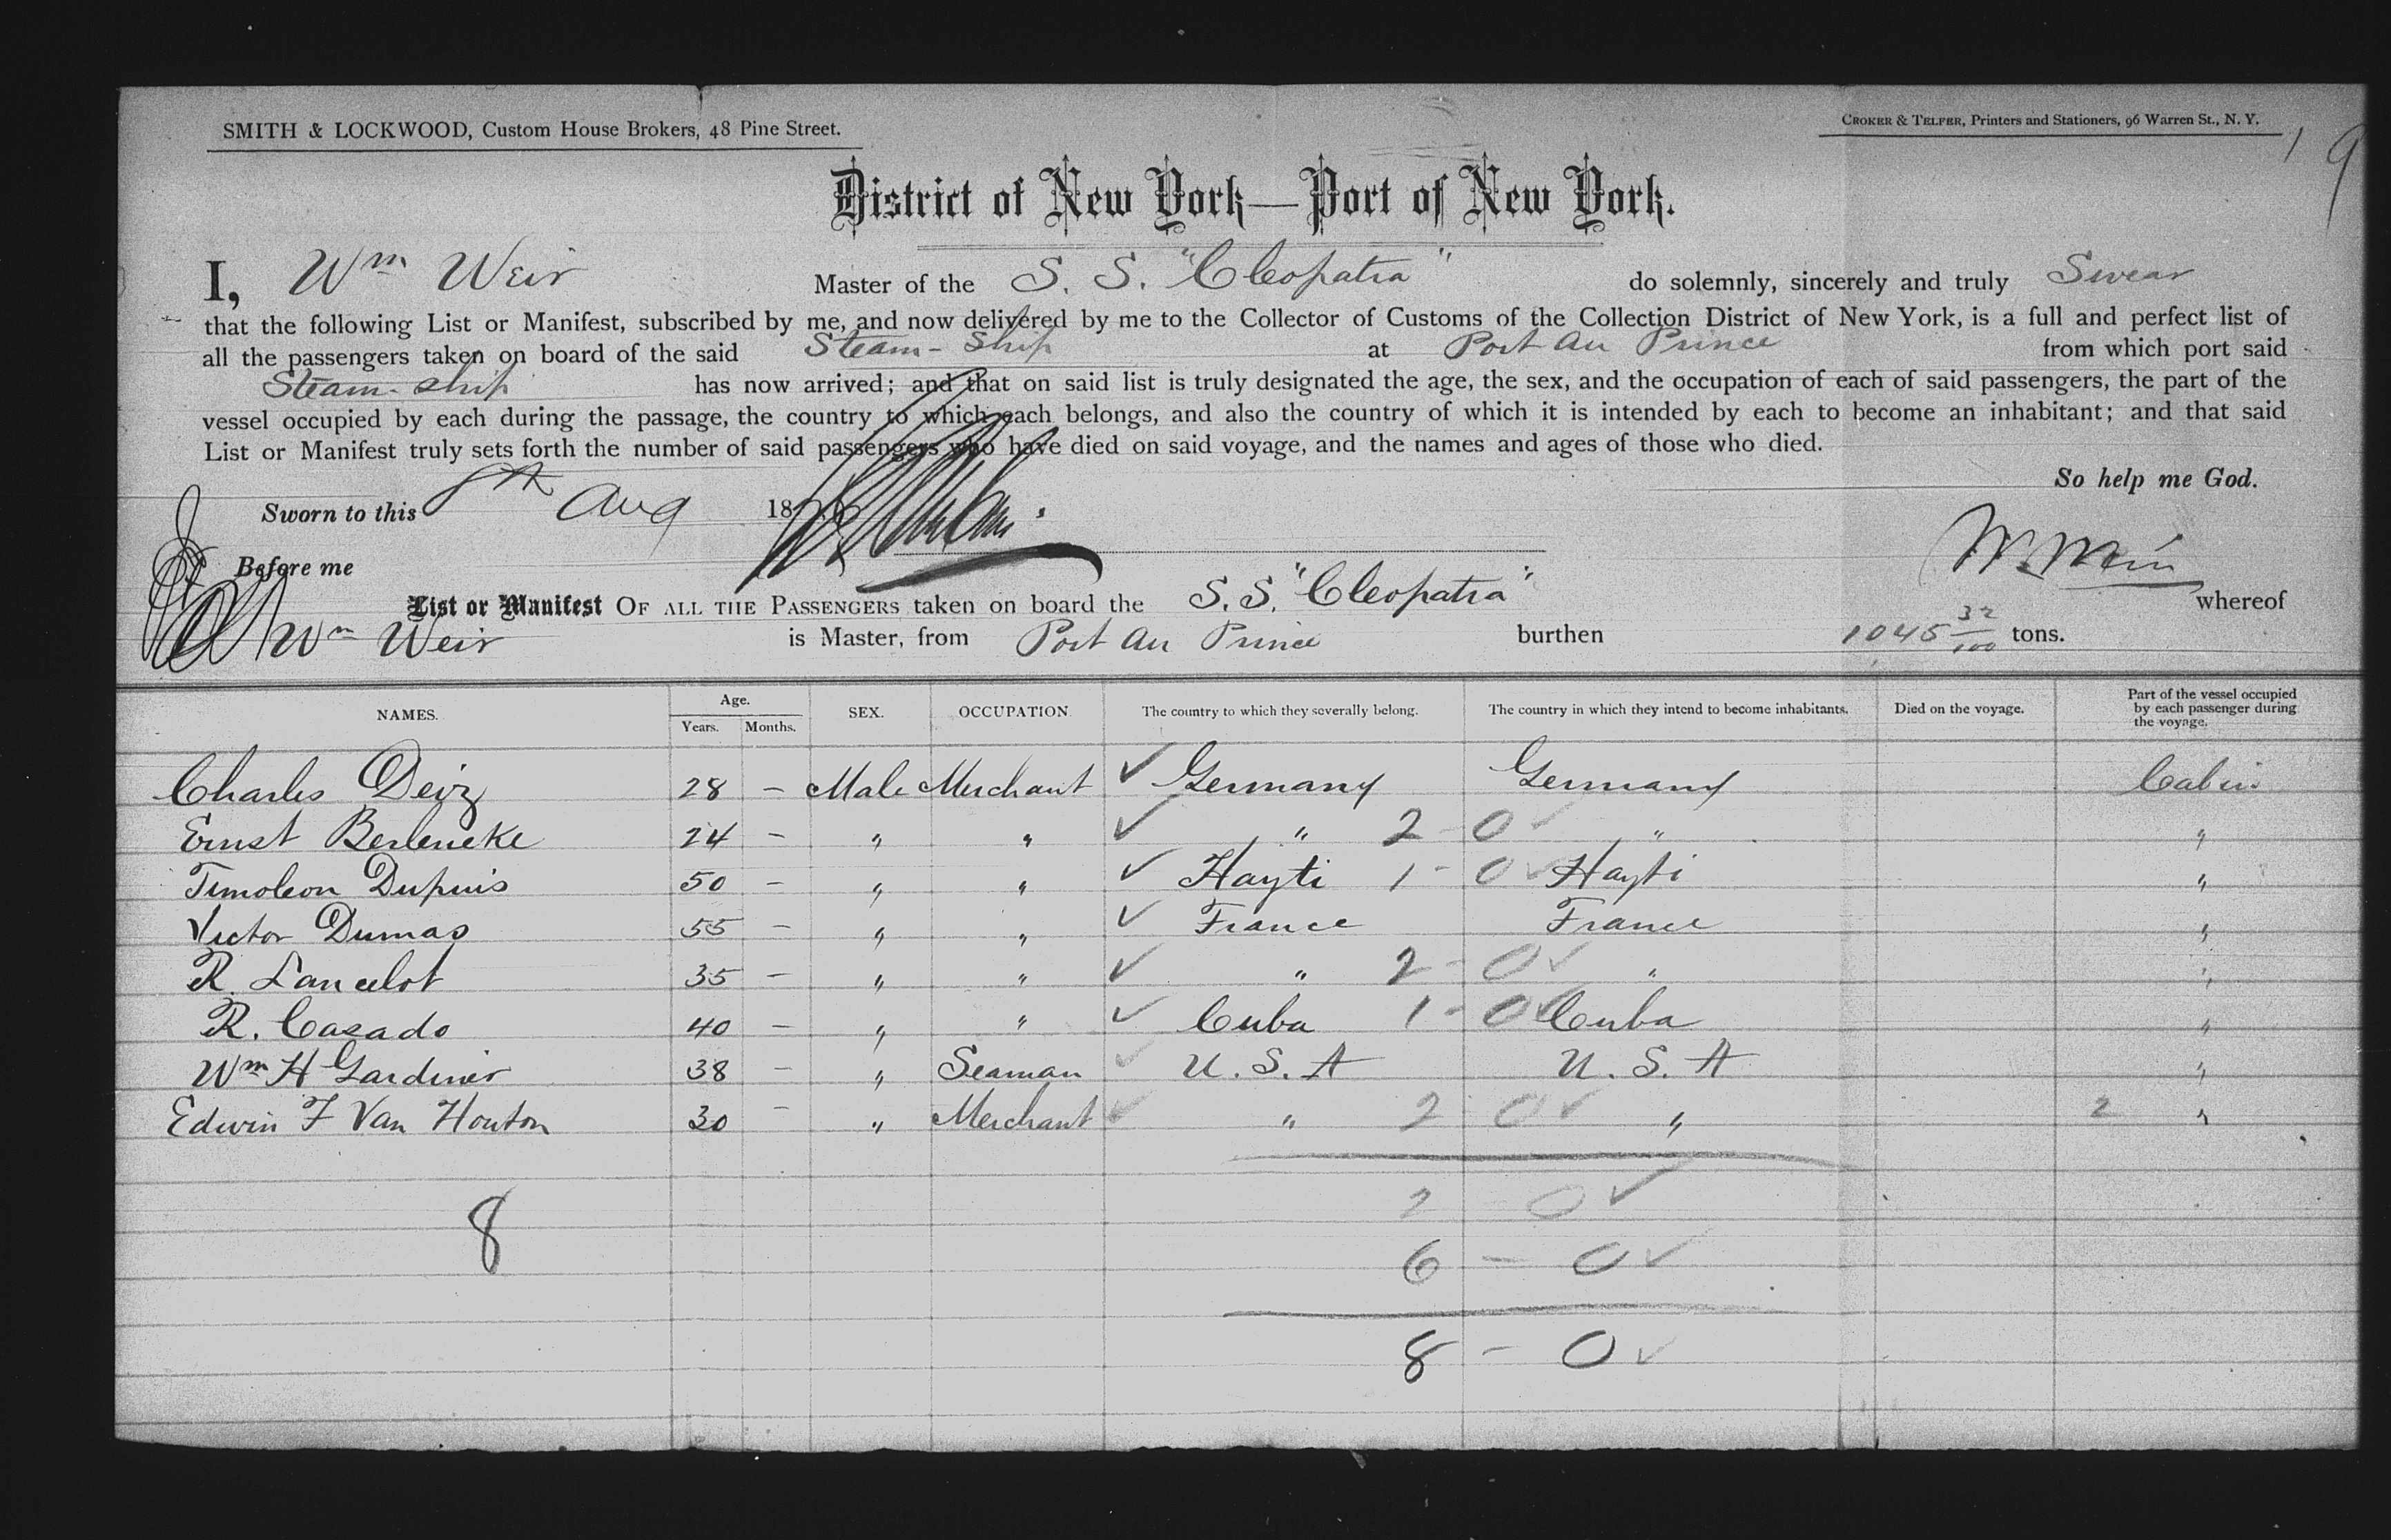 SMITH & LOCKWOOD, Custom House Brokers, 48 Pine Street.
CROKER & TELFER, Printers and Stationers, 96 Warren St., N. Y.
District of New York—Port of New York.
I, Wm Weir Master of the S. S. "Cleopatra" do solemnly, sincerely and truly Swear
that the following List or Manifest, subscribed by me, and now delivered by me to the Collector of Customs of the Collection District of New York, is a full and perfect list of
all the passengers taken on board of the said Steam-Ship at Port Au Prince from which port said
Steam-ship has now arrived; and that on said list is truly designated the age, the sex, and the occupation of each of said passengers, the part of the
vessel occupied by each during the passage, the country to which each belongs, and also the country of which it is intended by each to become an inhabitant; and that said
List or Manifest truly sets forth the number of said passengers who have died on said voyage, and the names and ages of those who died.
So help me God.
Sworn to this 8th Aug 18
Before me
List or Manifest OF ALL THE PASSENGERS taken on board the S. S. "Cleopatra" whereof
Wm Weir is Master, from Port Au Prince burthen 1045 32/100 tons.
NAMES. Age. Years. Months. SEX. OCCUPATION. The country to which they severally belong. The country in which they intend to become inhabitants. Died on the voyage. Part of the vessel occupied by each passenger during the voyage.
Charles Deiz 28 – Male Merchant ✓ Germany Germany Cabin
Ernst 24 – " " ✓ " 2 - 0 ✓ " "
Timoleon Dupuis 50 – " " ✓ Hayti 1 - 0 ✓ Hayti "
Victor Dumas 55 – " " ✓ France France "
R. Lancelot 35 – " " ✓ " 2 - 0 ✓ " "
R. Casado 40 – " " ✓ Cuba 1 - 0 ✓ Cuba "
Wm H Gardiner 38 – " Seaman ✓ U. S. A U. S. A "
Edwin F Van Houton 30 – " Merchant ✓ " 2 0 ✓ " 2 "
2 0 ✓
8
6 – 0 ✓
8 – 0 ✓